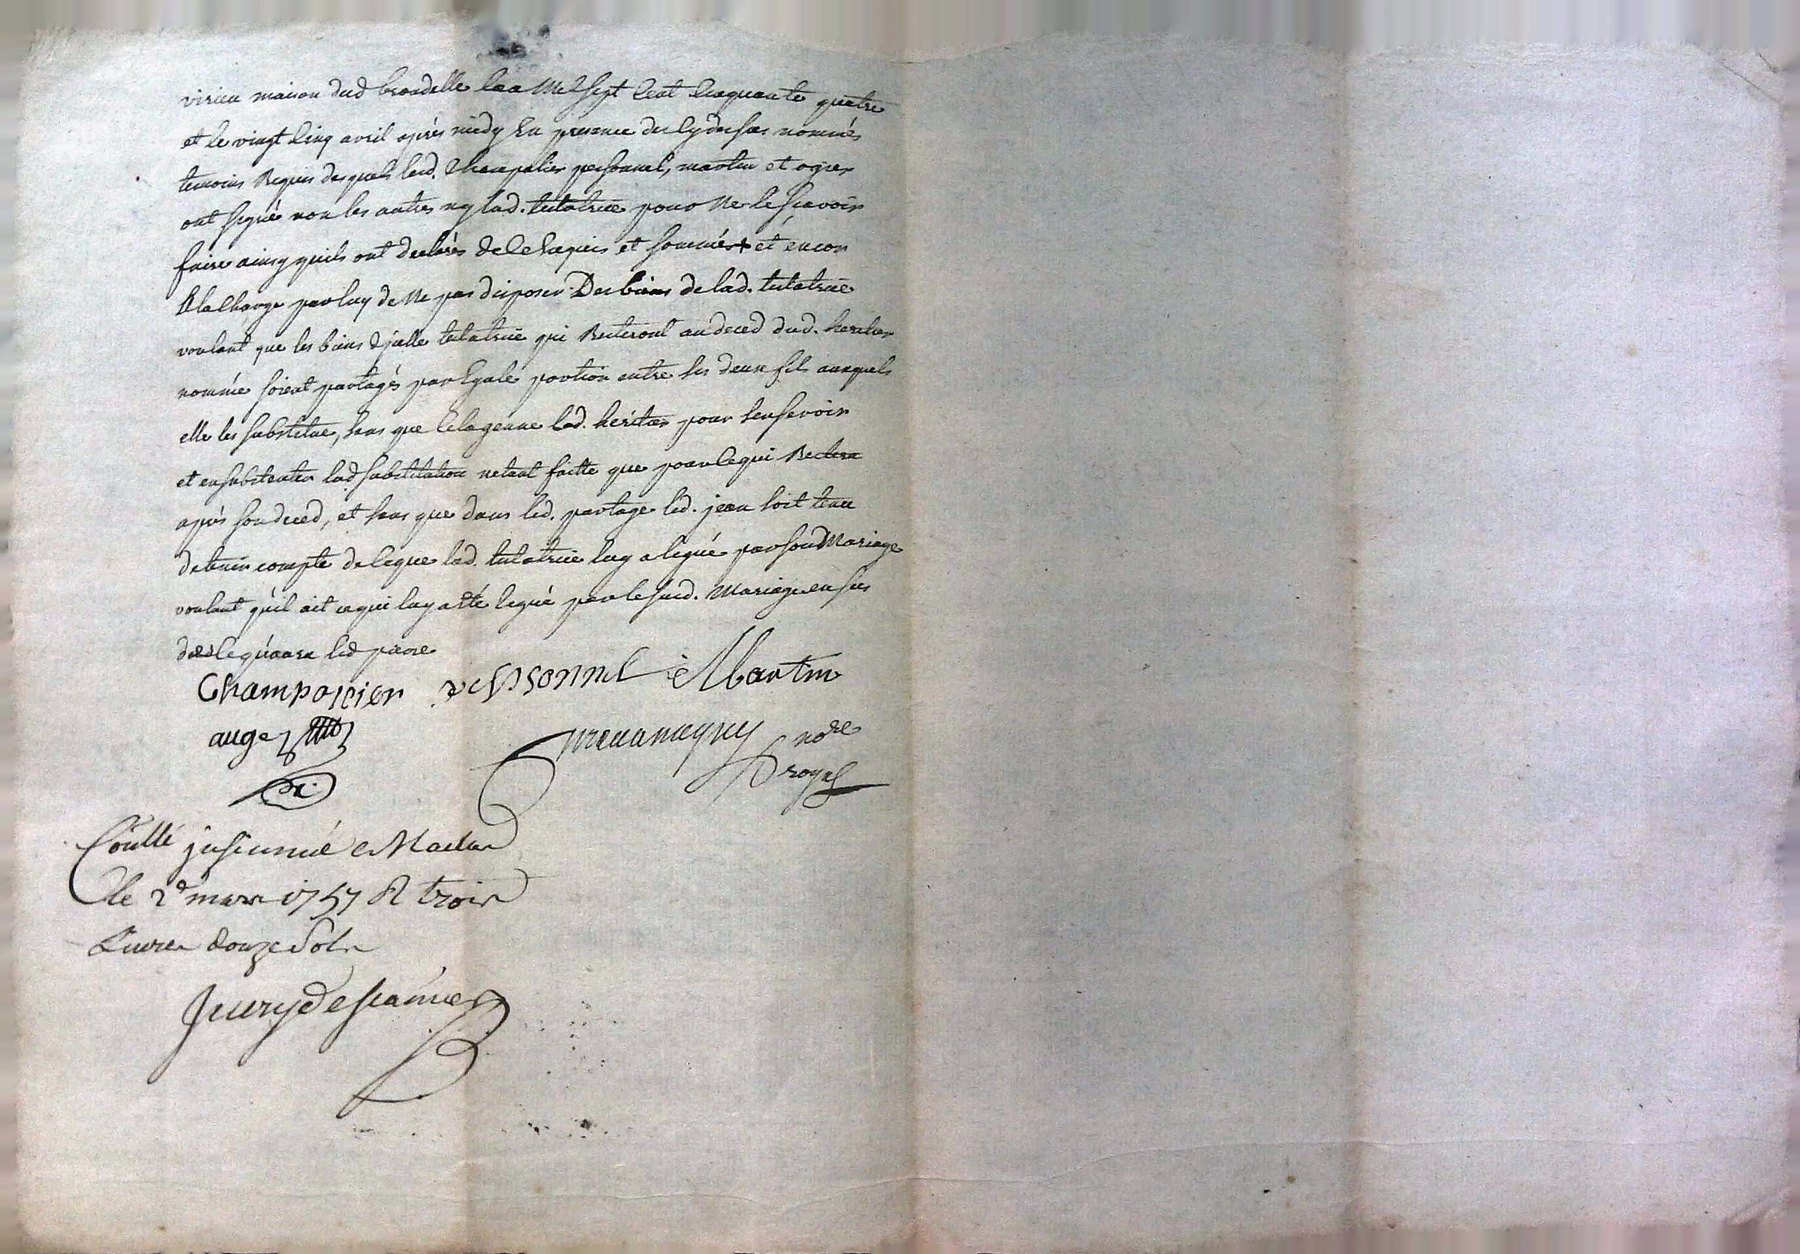 maison dud lan Mil sept Cent Cinquante quatre
et le vingt Cinq avril après midy En presence des Cy dessus nommés
temoins Requis desquels lesd. personnel, martin et
ont signé non les autres ny lad. testatrice pour Ne le scavoir
faire ainsy quils ont declarés de ce Enquis et sommés + et encor
A la Charge par luy de Ne pas disposer Des biens de lad. testatrice
voulant que les biens dicelle testatrice qui Resteront au deced dud. heritier
nommé soient partagés par Egale portion entre ses deux fils auxquels
elle les substitue, sans que Cela genne led. heritier pour sen servoir
et lad substitution netant faitte que pour Ce qui Restera
après son deced, et sans que dans led. partage led. jean soit tenu
de tenir compte de Ce que lad. testatrice luy a legué par son d Mariage
voulant quil ait ce qui luy a été legué par le susd. Mariage en sus
de ce quaura led pierre
Champoicier Personnel Martin
auge
nore
royal
Coullé
le 2d mars 1757 R trois
Livres douze Sols